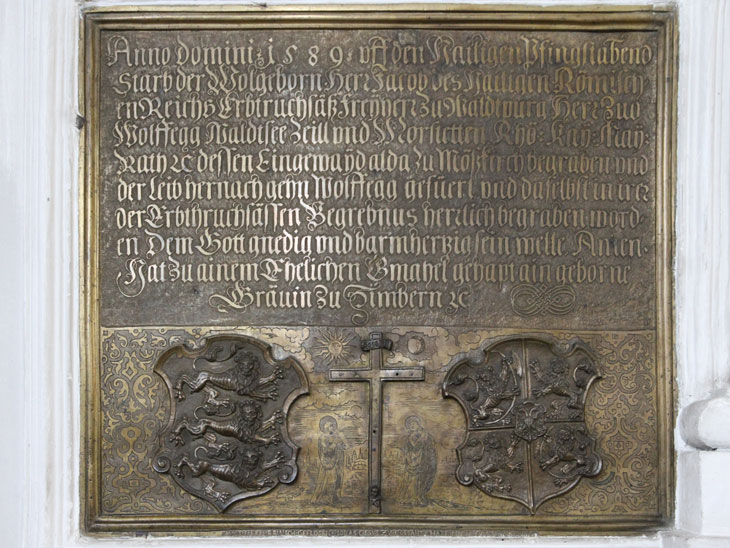 Anno domini · 1589 · vff den Hailigen Pfingstabend
Starb der Wolgeborn Herr Jacob des Hailigen Römisch
en Reichs Erbtruchsäß Freyherr zu Waldtpurg Herr zuo
Wolffegg Waldtsee Zeill vnd Morstetten Röm: Kay: May
Rath ⁊c dessen Eingewayd alda zu Mößkirch begraben vnd
der Leib hernach gehn Wolffegg gefüert vnd daselbst in irer
der Erbthruchsässen Begrebnus herrlich begraben word
en Dem Gott gnedig vnd barmhertzig sein welle Amen.
Hat zu ainem Ehelichen Gmahel gehapt ain geborne
Gräuin zu Zimbern ⁊c